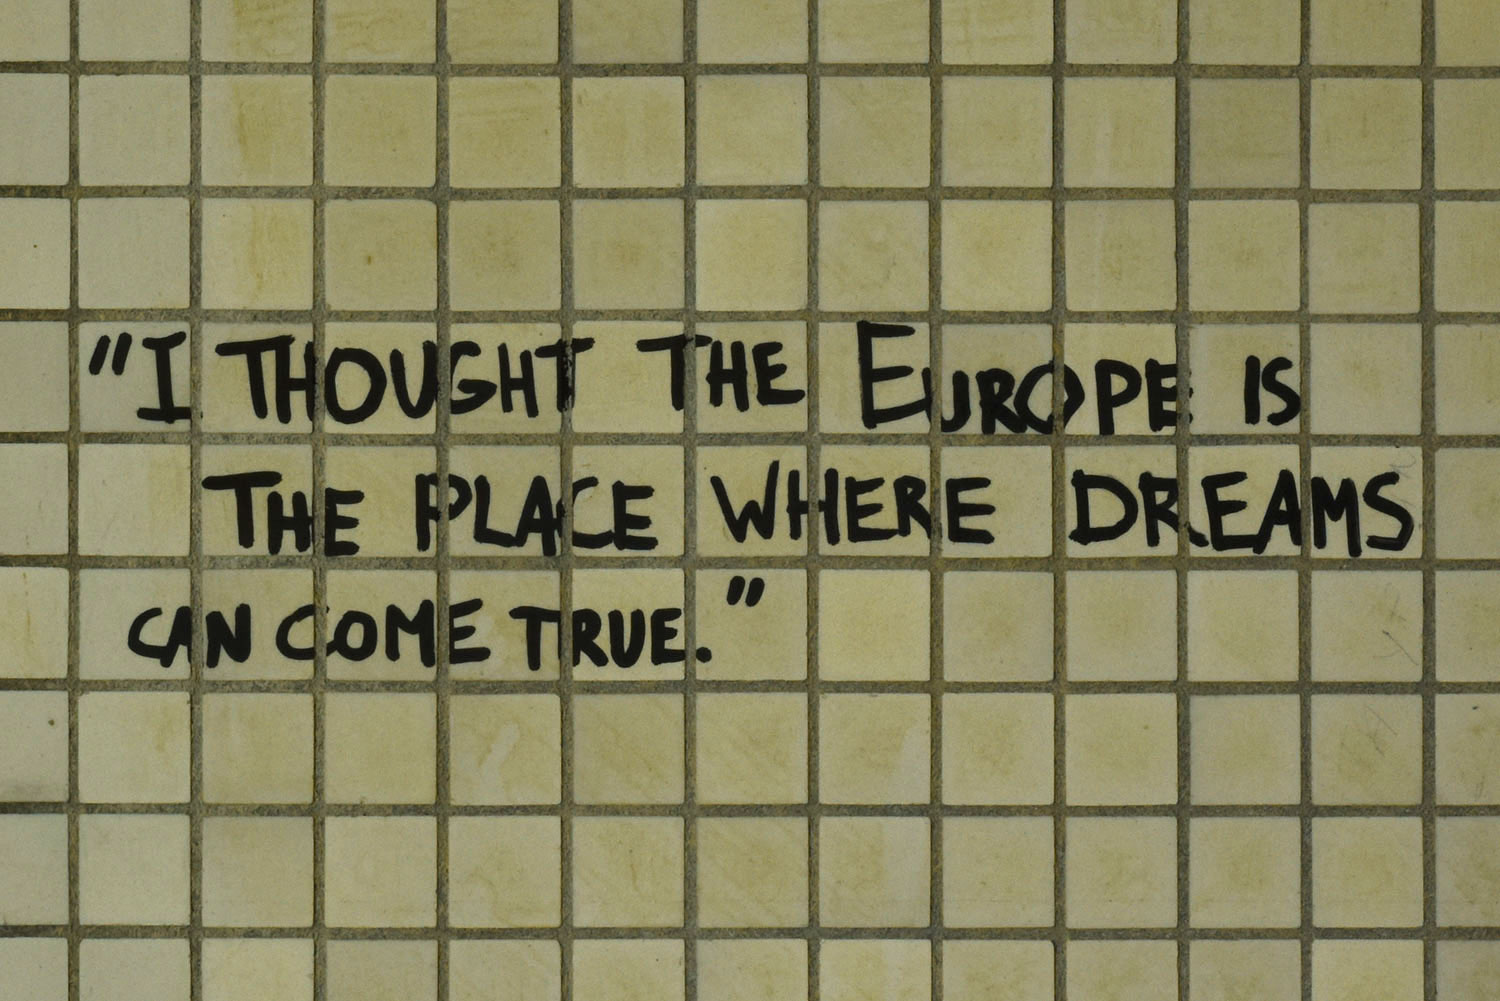 "I THOUGHT THE EUROPE IS
THE PLACE WHERE DREAMS
CAN COME TRUE."